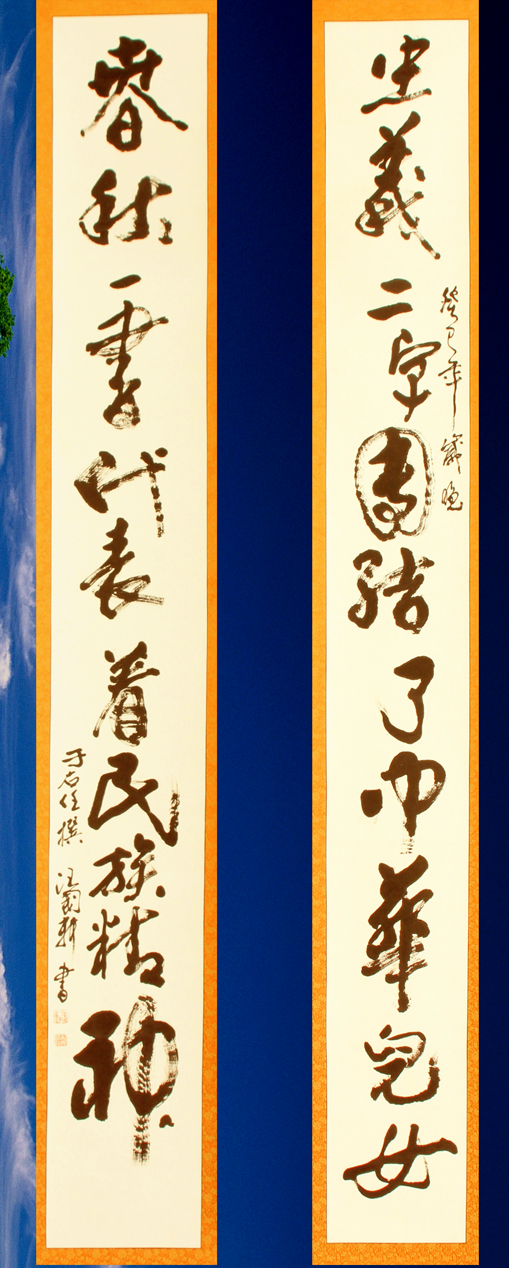 忠義二字團結了中華兒女
癸巳年歲晚
春秋一書代表着民族精神
于右任撰 汪國新書